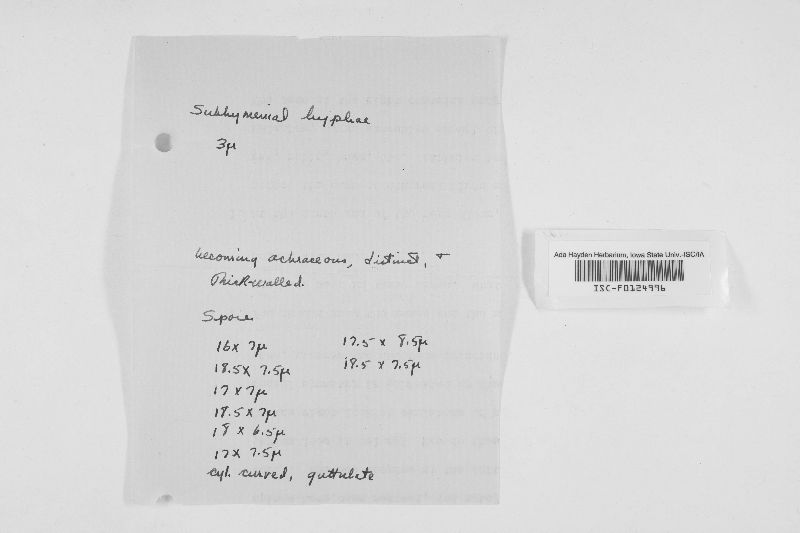 Subhymenial hyphae
3μ
becoming ochraceous, distinct, +
thick-walled.
Spores
16 x 7μ
17.5 x 8.5μ
18.5 x 7.5μ
18.5 x 7.5μ
17 x 7μ
18.5 x 7μ
18 x 6.5μ
17 x 7.5μ
cyl. curved, guttulate
Ada Hayden Herbarium, Iowa State Univ.-ISC/IA
ISC-F0124996